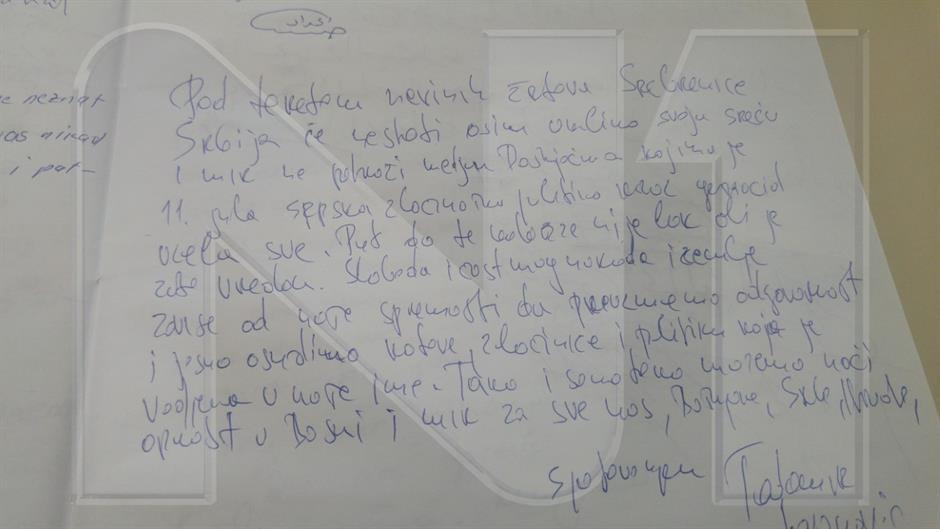 ne neznat
nas nikad
i pot-
Pod teretom nevinih žrtava Srebrenice
Srbija će nestati osim svoju sreću
i mir ne potraži među Bošnjacima kojima je
11. jula srpska zločinačka politika kroz genocid
uzela sve. Put do te nije lak ali je
zato vredan. Sloboda i čast mog naroda i zemlje
zavise od naše spremnosti da preuzmemo odgovornost
i jasno osudimo zločince i politiku koja je
vodjena u naše ime. Tako i samo tako možemo naći
oprost u Bosni i mir za sve nas, Bošnjake, Srbe, Hrvate,
S poštovanjem
N1